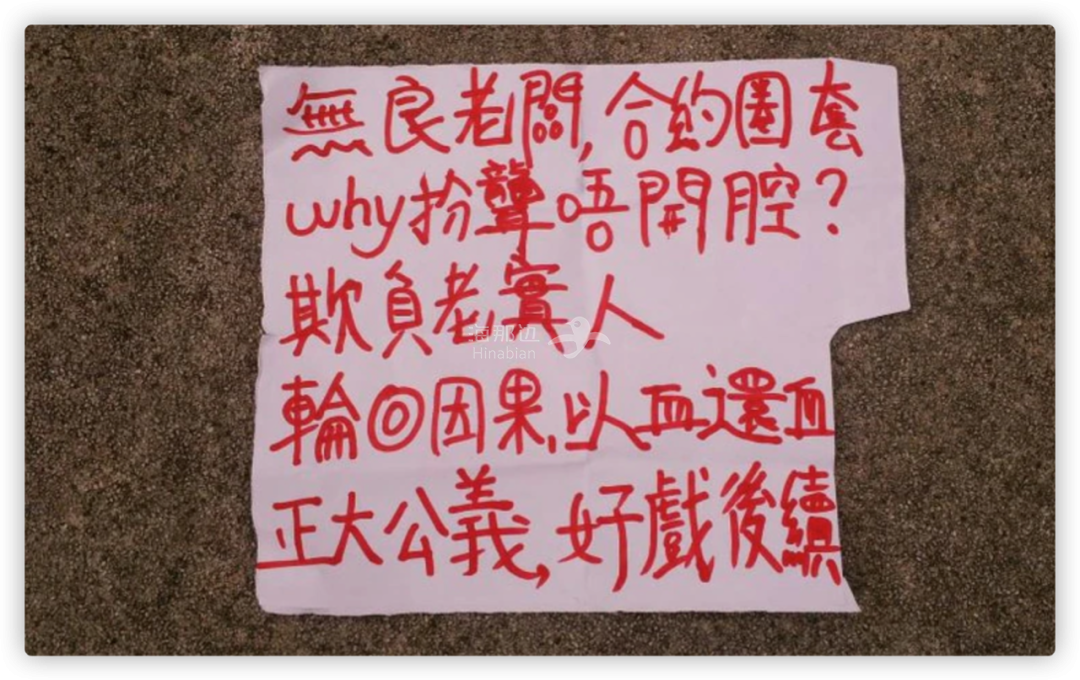 無良老闆,合約圈套
why扮聾唔開腔?
欺負老實人
海那边
Hinabian
輪回因果,以血還血
正大公義,好戲後續